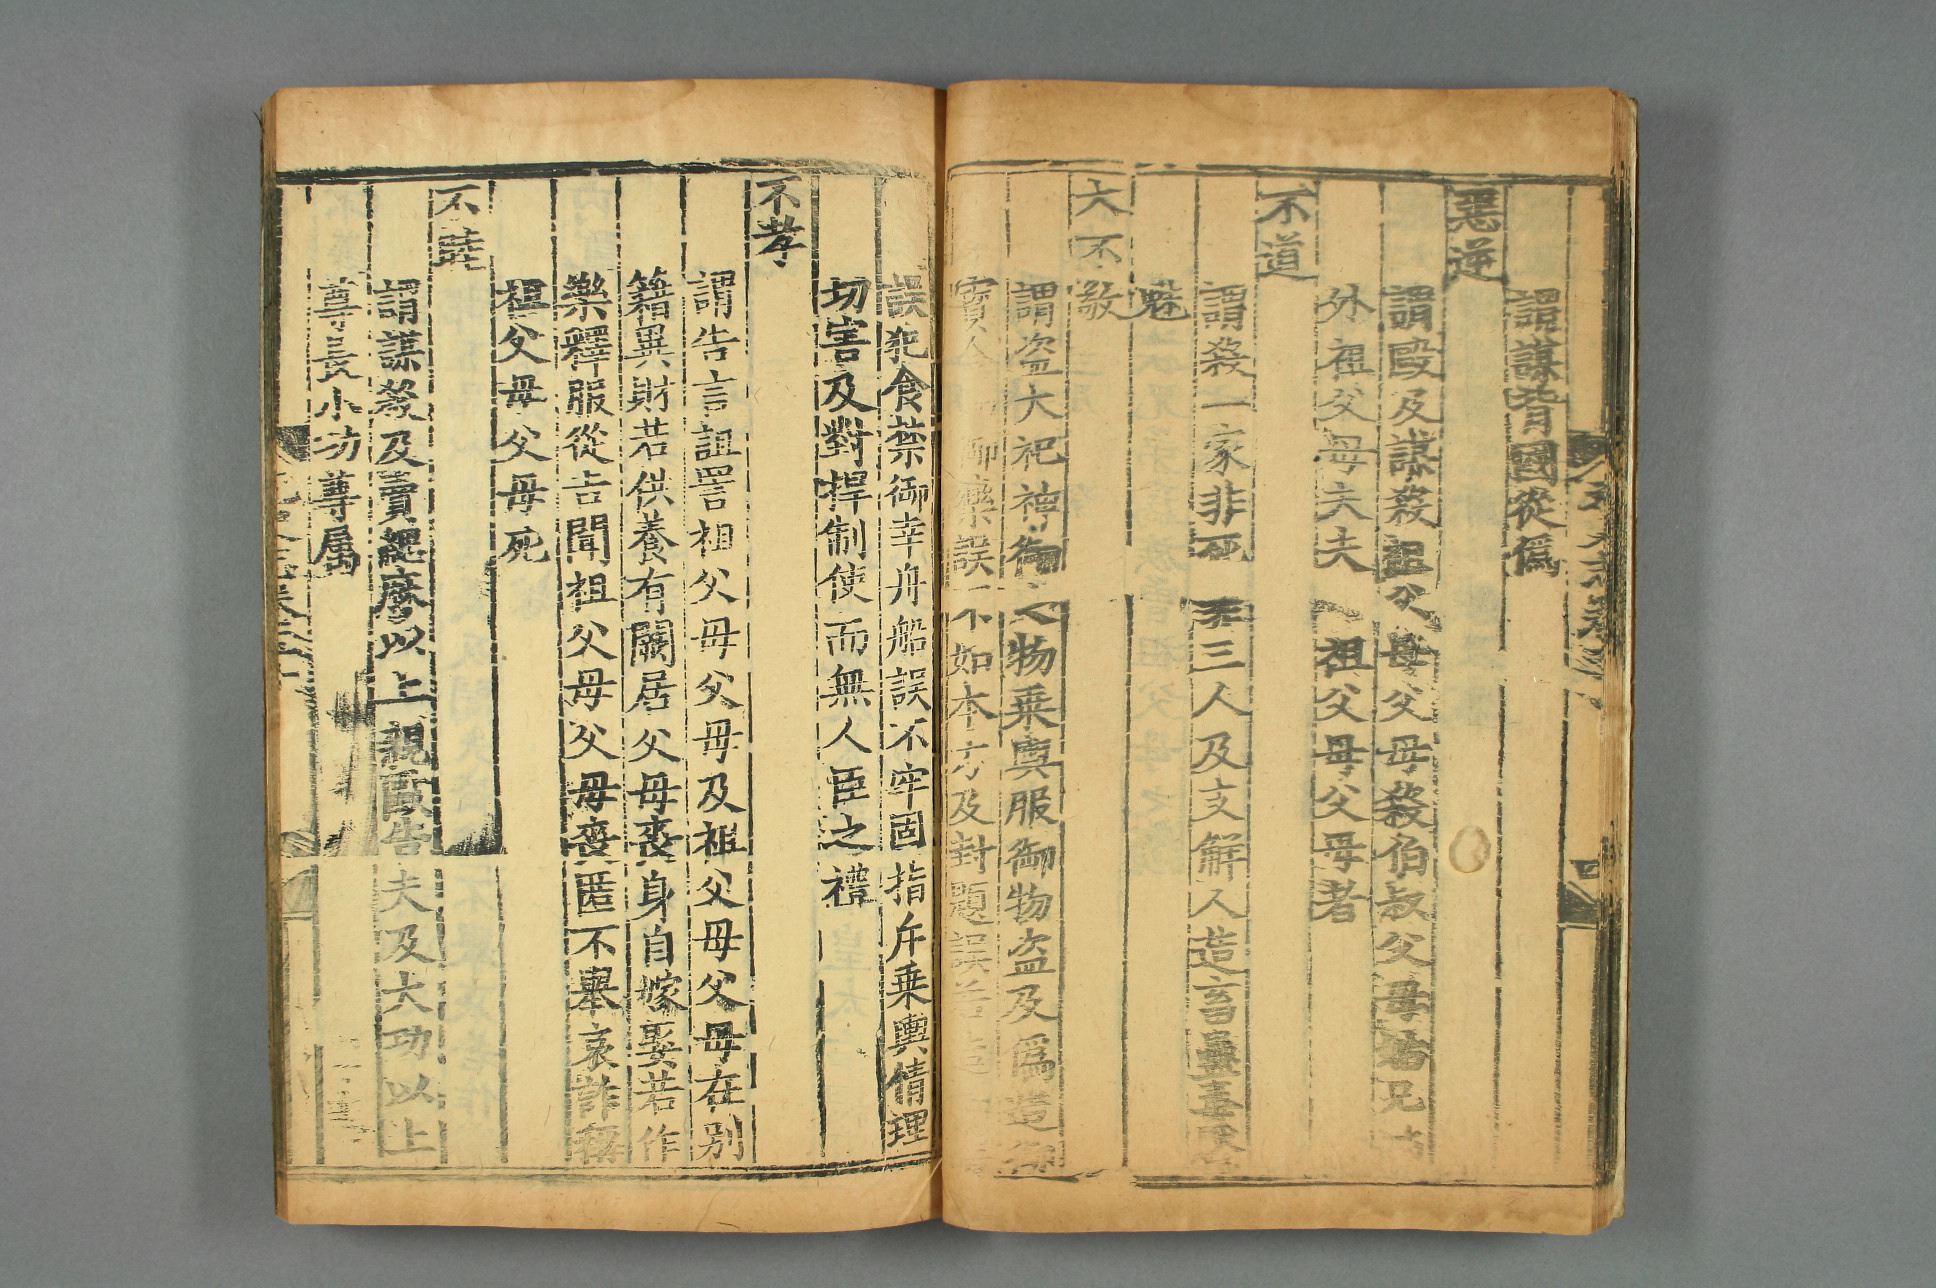 謂謀背國從僞
惡逆
謂毆及謀殺祖父母父母殺伯叔父母姑兄
外祖父母夫夫祖父母父母者
不道
謂殺一家非死三人及支解人造畜蠱毒厭
魅
大不敬
謂盜大祀神御之物乗輿服御物盜及僞造御
寶合和御藥誤不如本方及封題誤若造
誤犯食禁御幸舟船誤不牢固指斥乗輿情理
切害及對捍制使而無人臣之禮
不孝
謂告言詛詈祖父母父母及祖父母父母在别
籍異財若供養有闕居父母喪身自嫁娶若作
樂釋服從吉聞祖父母父母喪匿不舉哀詐稱
祖父母父母死
不睦
謂謀殺及賣緦麻以上親毆告夫及大功以上
尊長小功尊属